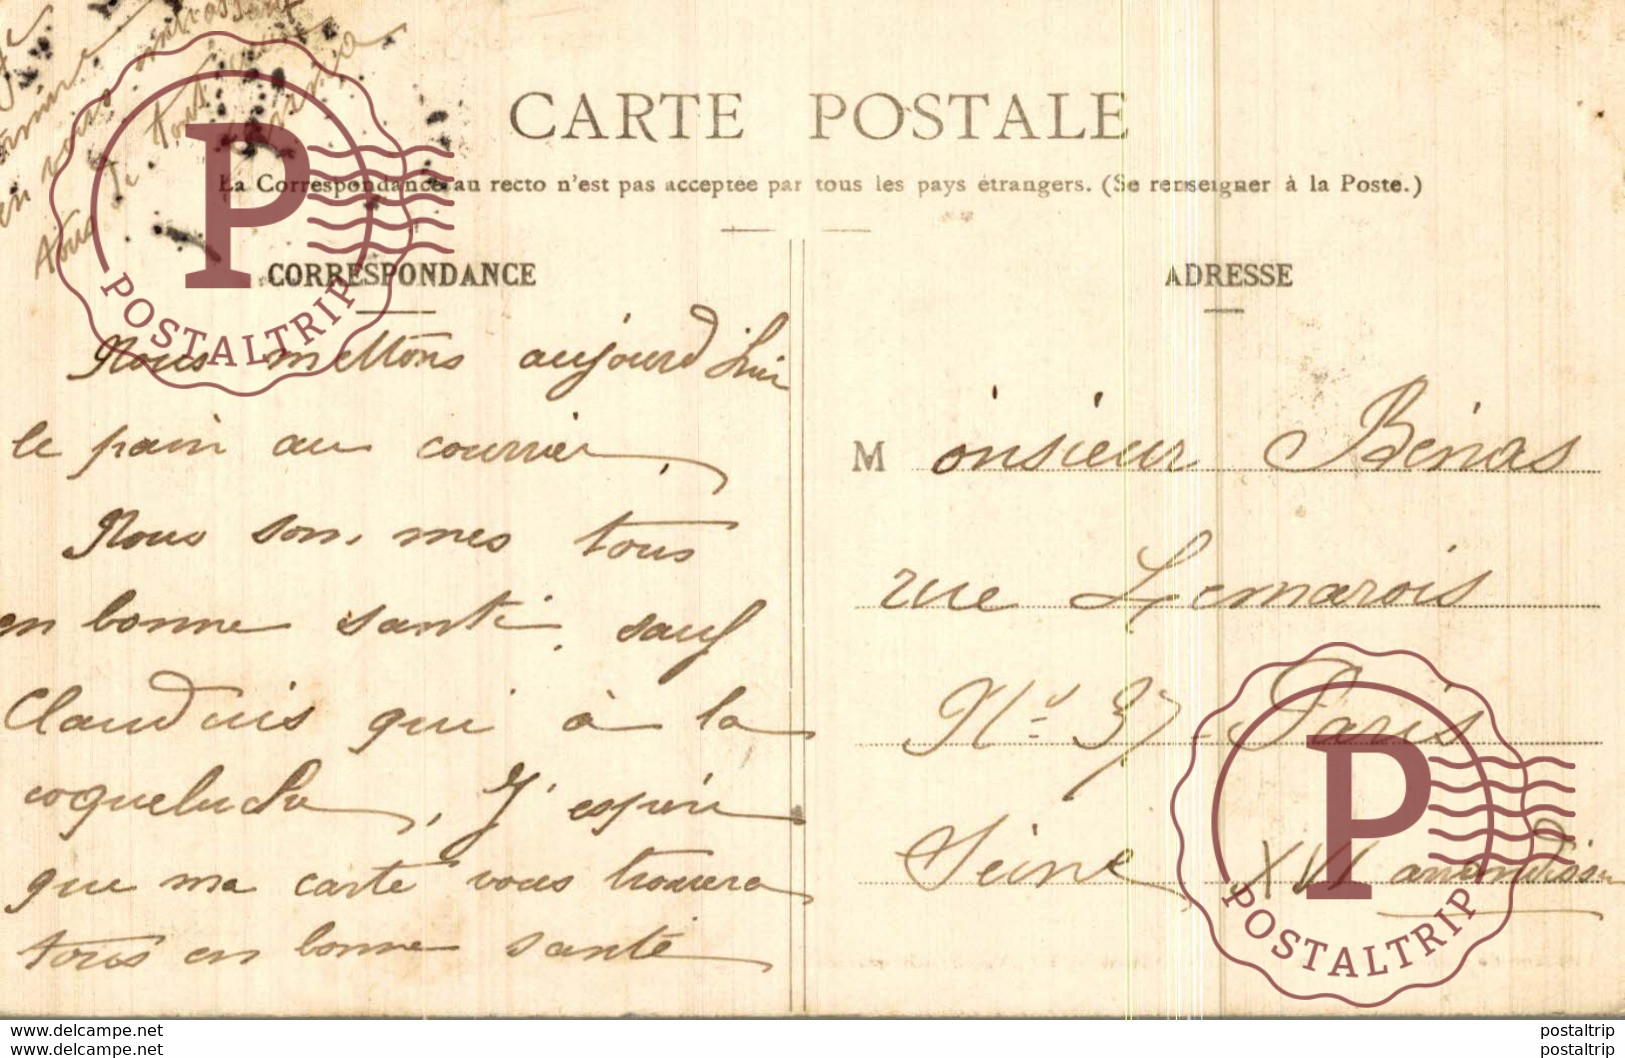 termine
en vous embrassant
tous de tout coeur
CARTE POSTALE
La Correspondance au recto n'est pas acceptée par tous les pays étrangers. (Se renseigner à la Poste.)
CORRESPONDANCE
Nous mettons aujourd hui
le pain au courrier,
Nous som, mes tous
en bonne santé, sauf
Clauduis qui à la
coqueluche, J'espère
que ma carte vous trouvera
tous en bonne santé
ADRESSE
Monsieur Bénas
rue Lemarois
No 37 - Paris
Seine XVI arrondiss
P
POSTALTRIP
P
POSTALTRIP
www.delcampe.net
postaltrip
www.delcampe.net
postaltrip